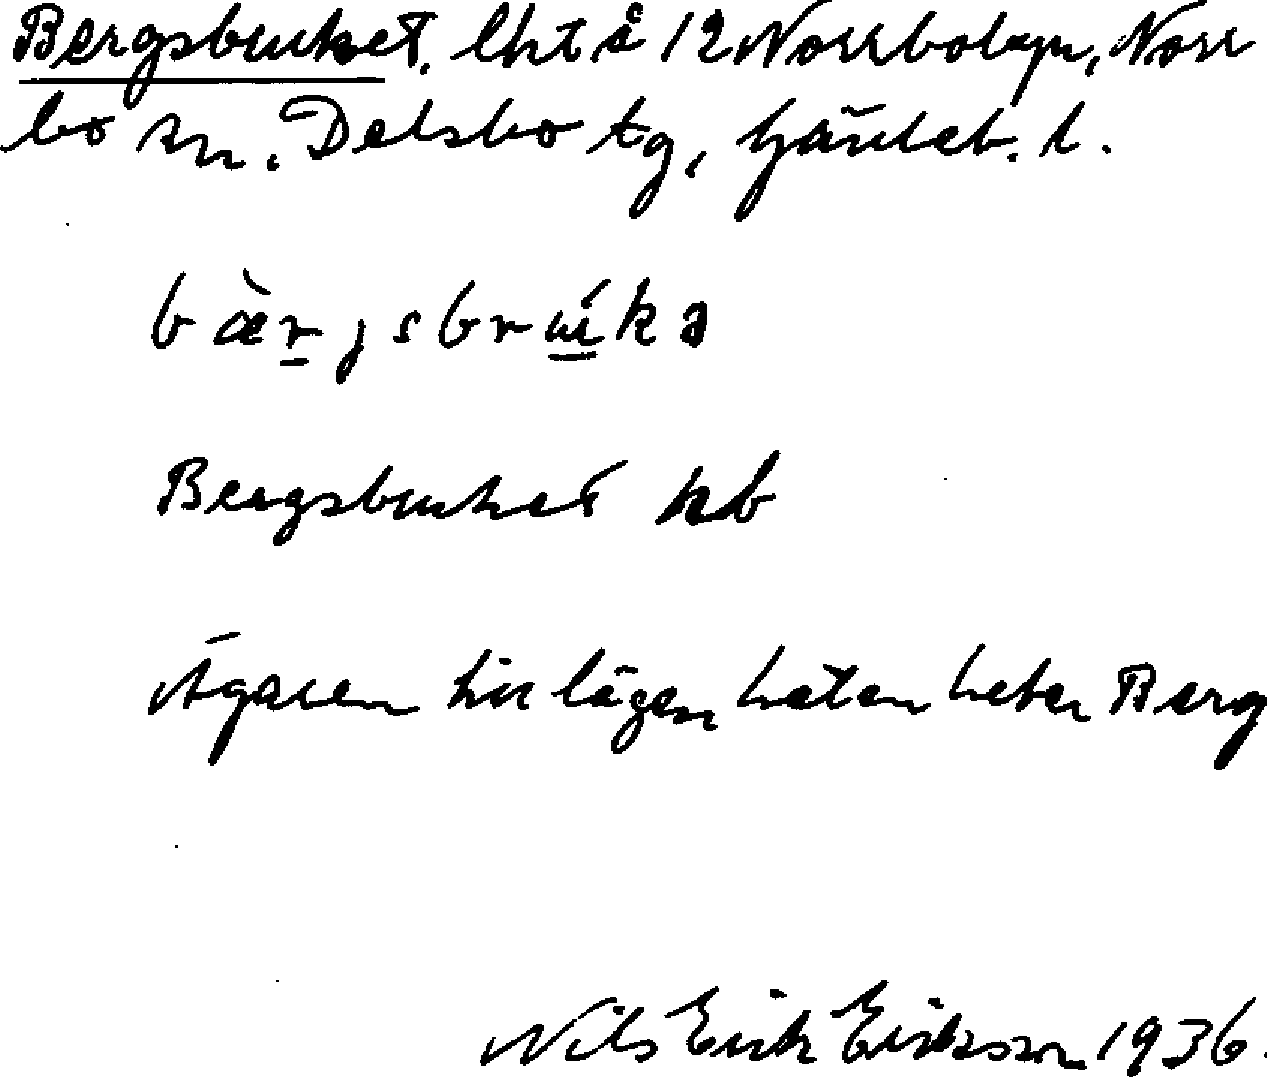 Bergsbruket. lht å 12 Norrbobyn, Norr
bo sn. Delsbo tg, Gävleb. l.
bæ̀r̠jsbrúkə
Bergsbruket kb
Ägaren till lägenheten heter Berg
Nils Erik Eriksson 1936.